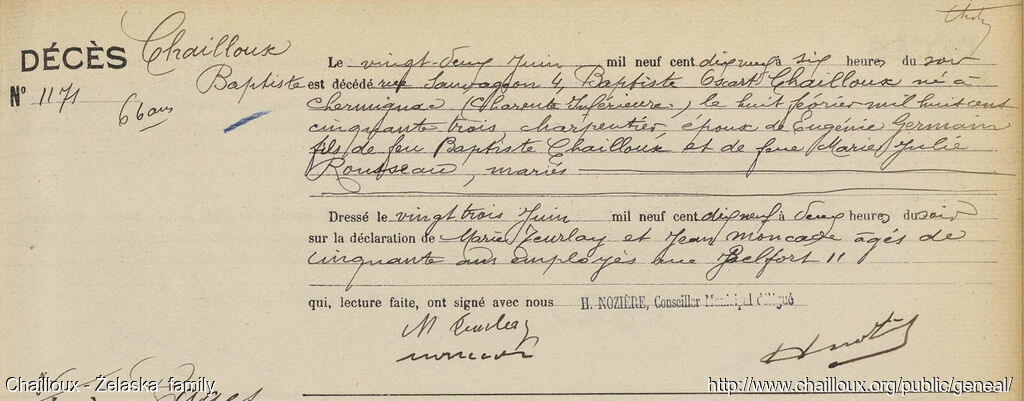 DÉCÈS
N° 1171
Chailloux
Baptiste
66 ans
Le vingt-deux Juin mil neuf cent dix neuf à six heures du soir
est décédé rue Sauvaggon 4, Baptiste Oscar Chailloux né à
Chermignac (Charente Inférieure,) le huit février mil huit cent
cinquante trois, charpentier, époux de Eugénie Germain
fils de feu Baptiste Chailloux et de feue Marie Julie
Rousseau, mariés
Dressé le vingt trois Juin mil neuf cent dix neuf à deux heures du soir
sur la déclaration de Marie Teurlay et Jean Moncade âgés de
cinquante ans employés rue Belfort 11
qui, lecture faite, ont signé avec nous H. NOZIÈRE, Conseiller Municipal délégué
M Teurlay
Moncade
Chailloux - Želaska family
http://www.chailloux.org/public/geneal/